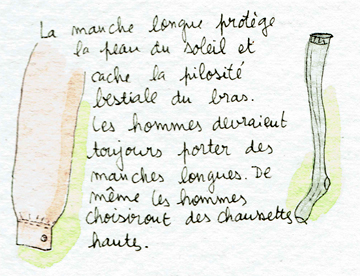 La manche longue protège
la peau du soleil et
cache la pilosité
bestiale du bras.
Les hommes devraient
toujours porter des
manches longues. De
même les hommes
choisiront des chaussettes
hautes.